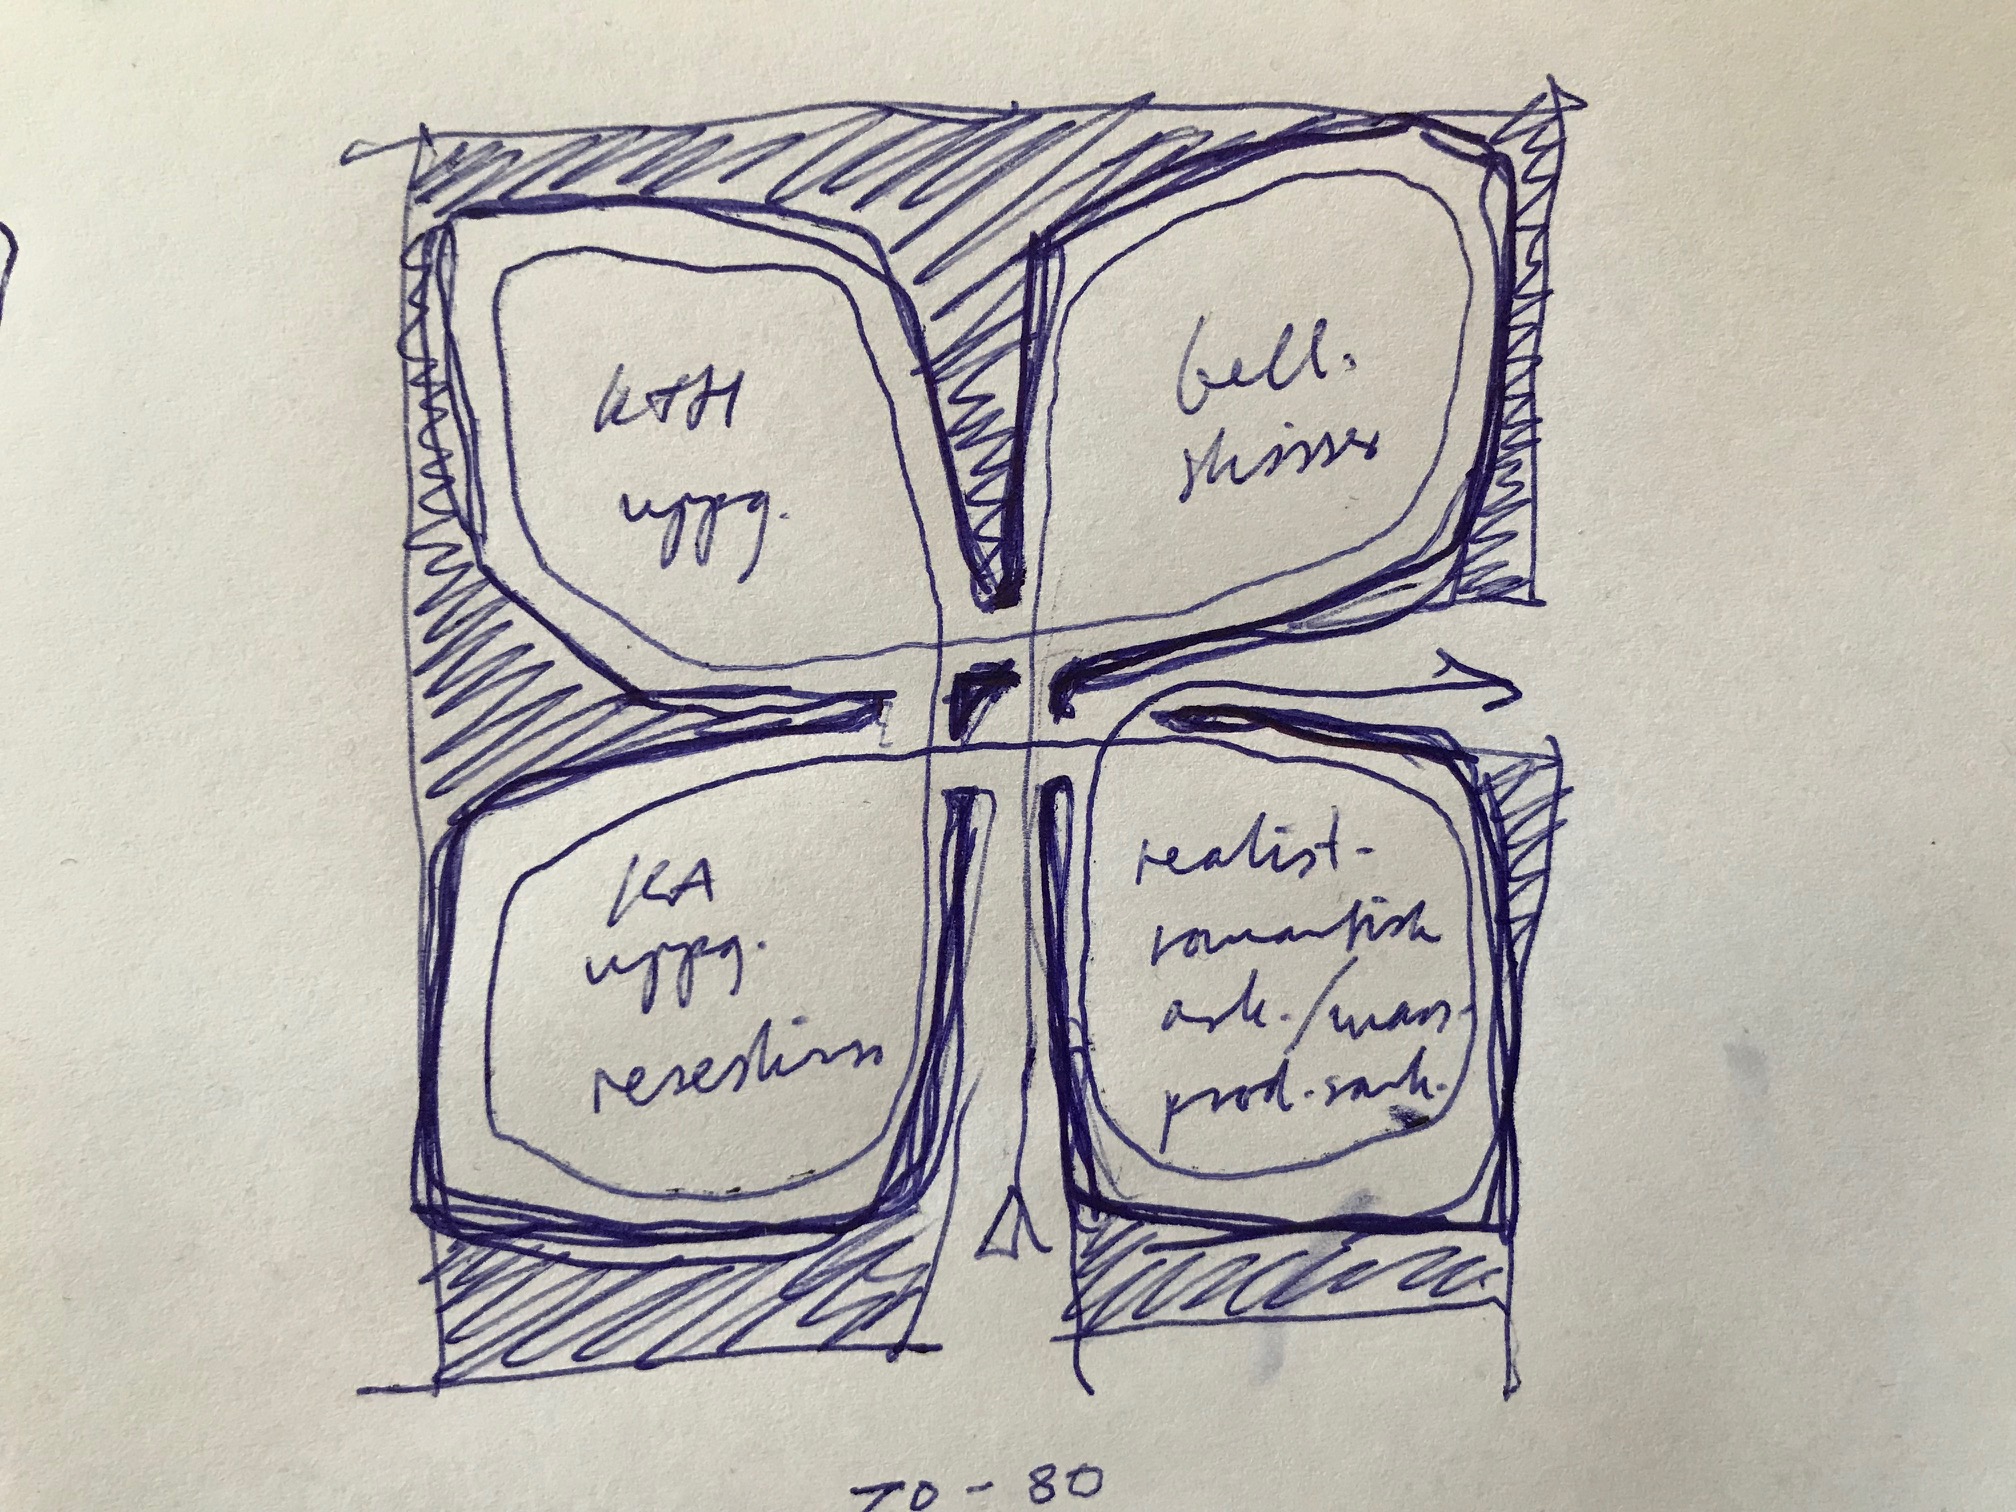 KTH
uppg.
bell.
skisser
KA
uppg.
reseskisser
realist-
romantisk
ark./mass-
prod.sark.
70-80